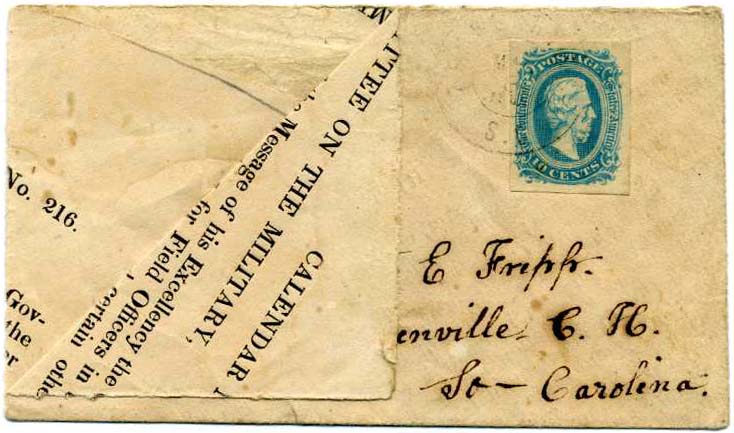 ITTEE ON THE MILITARY,
Message of his Excellency the
for Field Officers in
certain othe
CALENDAR
No. 216.
Gov-
the
er
POSTAGE
10 CENTS
S. C.
E Fripp.
enville C. H.
So - Carolina.